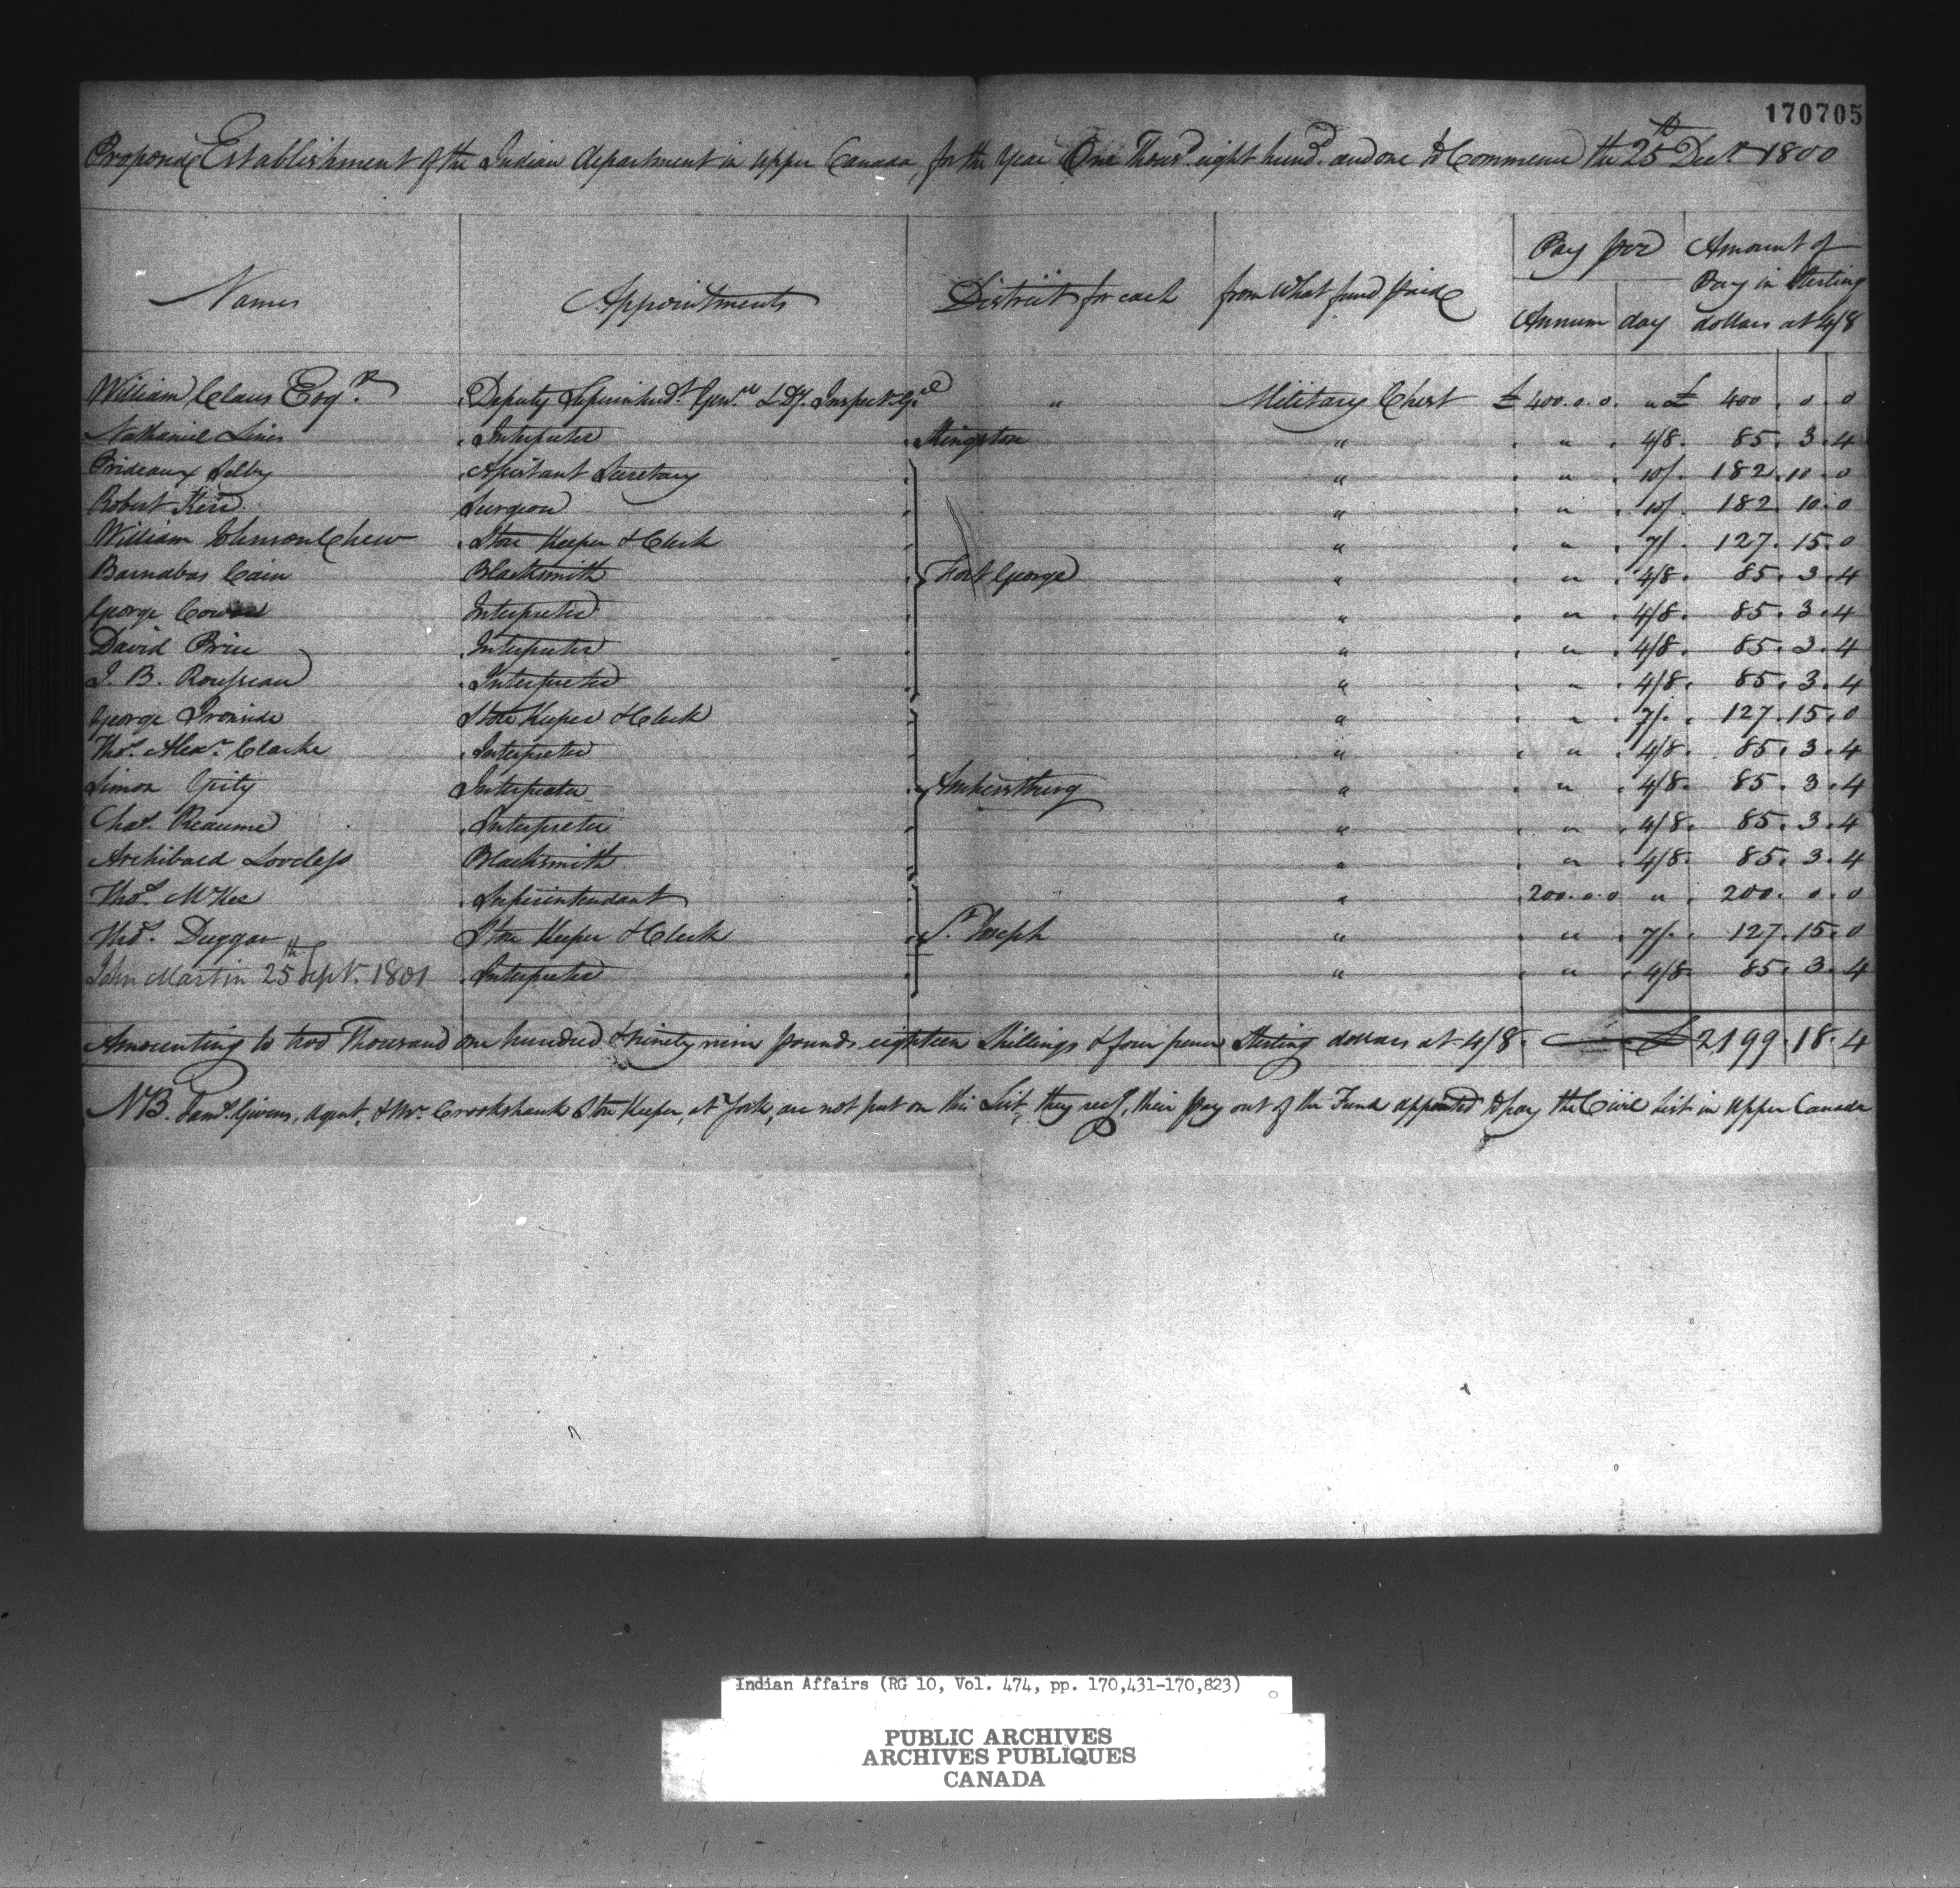 170705
Proposed Establishment of the Indian Department in Upper Canada, for the Year One Thousd. eight hundd. and one to Commence the 25th Decr. 1800
Names Appointments District for each from What fund Paid Pay per Annum day Amount of Pay in Sterling dollars at 4/8
William Claus Esqr. Deputy Superintendt. Genral & Dy. Inspectr. Gel " Military Chest £ 400.0.0. " £ 400. 0. 0
Nathaniel Lines Interpreter Kingston " " 4/8. 85. 3. 4
Prideaux Selby Assistant Secretary " " 10/. 182. 10. 0
Robert Kerr Surgeon " " 10/. 182. 10. 0
William Johnson Chew Store Keeper & Clerk " " 7/. 127. 15. 0
Barnabas Cain Blacksmith Fort George " " 4/8. 85. 3. 4
George Cowan Interpreter " " 4/8. 85. 3. 4
David Price Interpreter " " 4/8. 85. 3. 4
J. B. Rousseau Interpreter " " 4/8. 85. 3. 4
George Ironside Store Keeper & Clerk " " 7/. 127. 15. 0
Thos. Alexr. Clarke Interpreter " " 4/8. 85. 3. 4
Simon Girty Interpreter Amherstburg " " 4/8. 85. 3. 4
Chas. Reaume Interpreter " " 4/8. 85. 3. 4
Archibald Loveless Blacksmith " " 4/8. 85. 3. 4
Thos. McKee Superintendant " 200.0.0 " 200. 0. 0
Thos. Duggan Store Keeper & Clerk St. Joseph " " 7/. 127. 15. 0
John Martin 25th Sept. 1801 Interpreter " " 4/8 85. 3. 4
Amounting to two Thousand one hundred & ninety nine pounds eighteen Shillings & four pence Sterling dollars at 4/8. £ 2199. 18. 4
NB. Saml. Givens, Agent, & Mr. Crookshank Store Keeper, at York, are not put on this List, they rec. their Pay out of the Fund appointed to pay the Civil List in Upper Canada
Indian Affairs (RG 10, Vol. 474, pp. 170,431-170,823)
PUBLIC ARCHIVES
ARCHIVES PUBLIQUES
CANADA